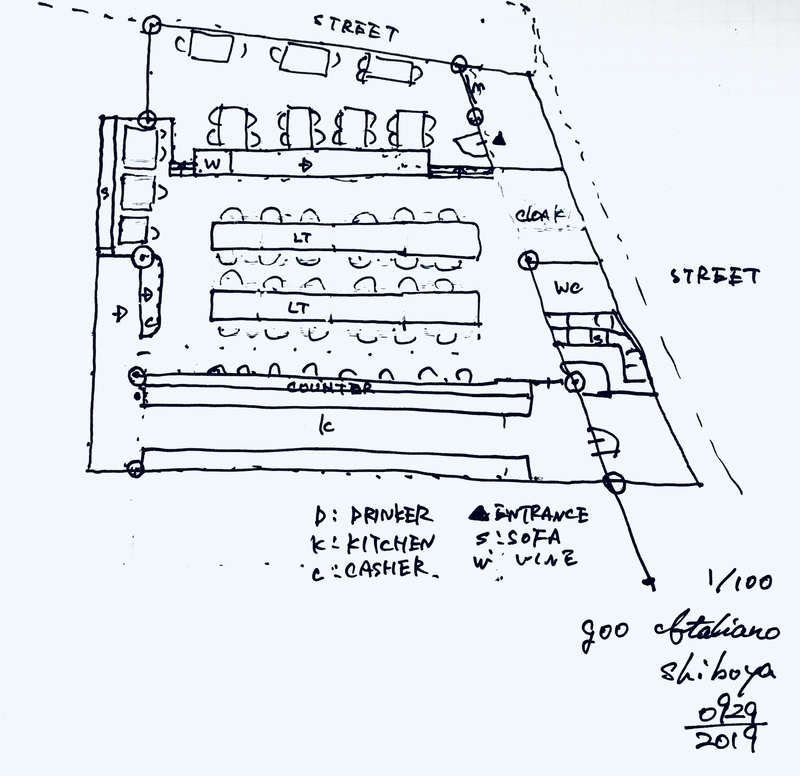 STREET
W D
S
CLOAK
STREET
LT
WC
D D
LT
S
C
COUNTER
K
D: DRINKER ▲ENTRANCE
K: KITCHEN S: SOFA
C: CASHER. W: VINE
1/100
goo Italiano
Shiboya
0929
2019